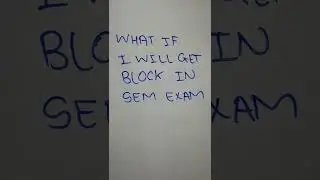 WHAT IF
I WILL GET
BLOCK IN
SEM EXAM